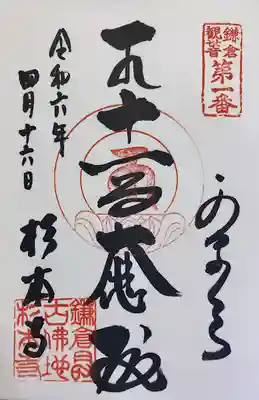 鎌倉
観音
第一番
かまくら
十一面大悲殿
令和六年
四月十六日
杉本寺
鎌倉最
古佛地
杉本寺